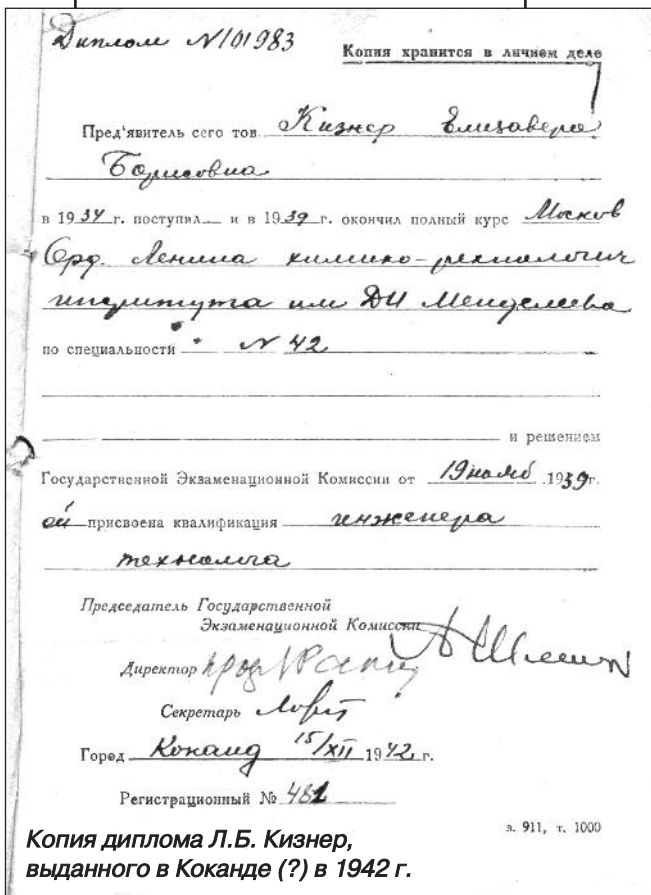 Диплом №101983
Копия хранится в личном деле
Пред'явитель сего тов. Кизнер Елизавета
Борисовна
в 1934 г. поступил и в 1939 г. окончил полный курс Москов
Орд. Ленина химико-технологич
института им ДИ Менделеева
по специальности № 42
и решением
Государственной Экзаменационной Комиссии от 19 нояб 1939г.
ей присвоена квалификация инженера
технолога
Председатель Государственной
Экзаменационной Комиссии
Директор проф
Секретарь
Город Коканд 15/XII 1942 г.
Регистрационный № 481
з. 911, т. 1000
Копия диплома Л.Б. Кизнер,
выданного в Коканде (?) в 1942 г.